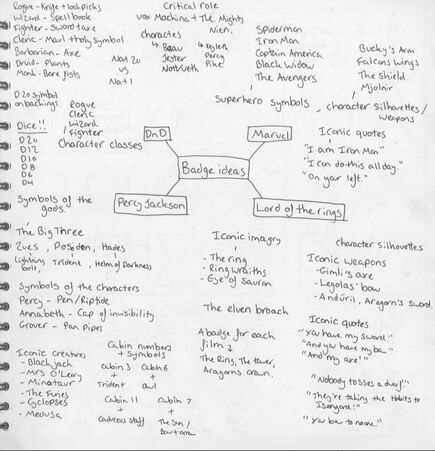 Rogue - Knife + lockpicks
Wizard - Spellbook
Fighter - Sword + axe
Cleric - Maul + holy symbol
Barbarian - Axe
Druid - Plants
Monk - Bare fists
Nat 20
vs
Nat 1
D20 symbol
on backings.
Rogue
Cleric
Wizard
Fighter
Character classes
Dice!!
D20
D12
D10
D8
D6
D4
Symbols of the
gods.
Critical role
Vox Machina + The Mighty
Nien.
Characters
Beau
Jester
Nott/Veth
Keyleth
Percy
Pike
Spiderman
Iron Man
Captain America
Black Widow
The Avengers
Superhero symbols
Bucky's Arm
Falcons Wings
The Shield
Mjolnir
character silhouettes /
weapons
Iconic quotes
"I am Iron Man"
"I can do this all day."
"On your left."
DnD
Marvel
Badge ideas
Percy Jackson
Lord of the rings
The Big Three
Zues, Posiden, Hades
Lightning bolt, Trident, Helm of Darkness
Symbols of the characters
Percy - Pen/Riptide
Annabeth - Cap of invisibility
Grover - Pan pipes
Iconic creatures
- Blackjack
- Mrs O'Leary
- Minotaur
- The Furies
- Cyclopses
- Medusa
Cabin numbers
+ Symbols
Cabin 3
+
Trident
Cabin 6
+
owl
Cabin 11
+
Cadueus staff
Cabin 7
+
The Sun /
Bow + arrow
Iconic imagry
- The ring
- Ring wraiths
- Eye of Sauron
The elven broach
A badge for each
film?
The Ring, The tower,
Aragorns crown.
Character Silhouettes
Iconic weapons
- Gimli's axe
- Legolas' bow
- Andúril, Aragorn's sword
Iconic quotes
"You have my sword."
"And you have my bow."
"And my axe!"
"Nobody tosses a dwarf"
"They're taking the Hobbits to
Isengard!"
"You bow to no one."